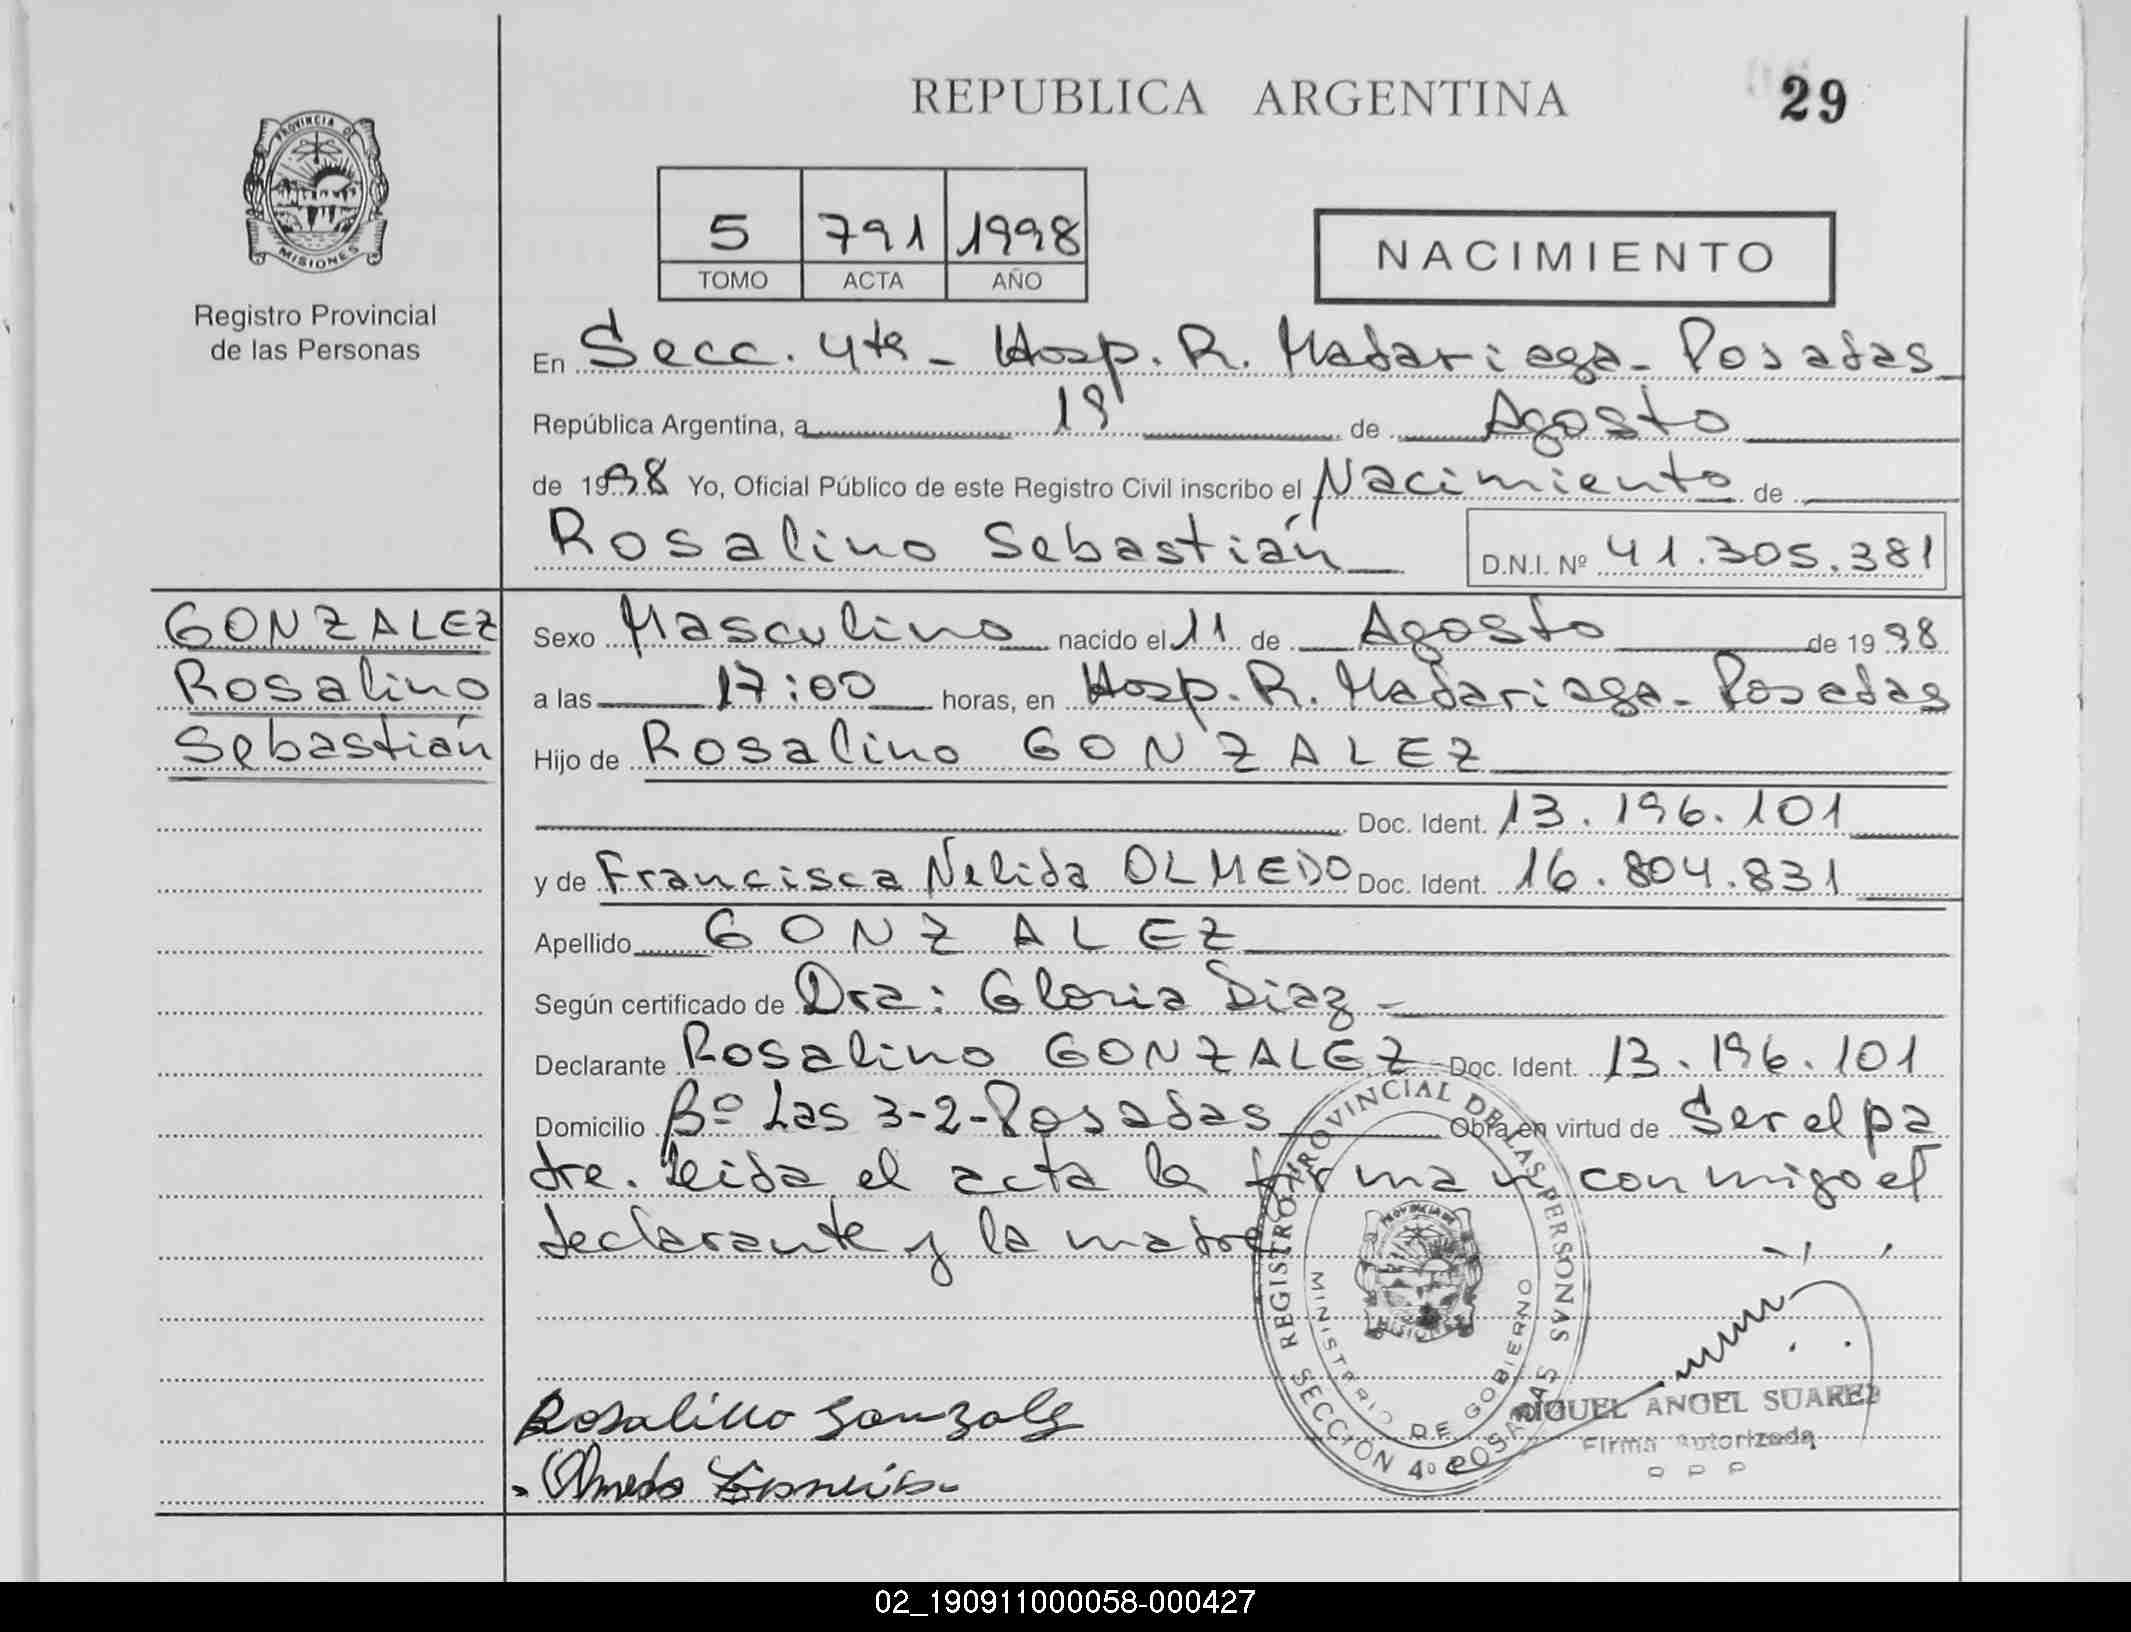 REPUBLICA ARGENTINA
29
PROVINCIA DE
MISIONES
Registro Provincial
de las Personas
5 791 1998
TOMO ACTA AÑO
NACIMIENTO
En Secc. 4ta - Hosp. R. Madariaga - Posadas
República Argentina, a 19 de Agosto
de 1998 Yo, Oficial Público de este Registro Civil inscribo el Nacimiento de
Rosalino Sebastián D.N.I. Nº 41.305.381
GONZALEZ
Rosalino
Sebastián
Sexo Masculino nacido el 11 de Agosto de 1998
a las 17:00 horas, en Hosp. R. Madariaga - Posadas
Hijo de Rosalino GONZALEZ
Doc. Ident. 13.196.101
y de Francisca Nelida OLMEDO Doc. Ident. 16.804.831
Apellido GONZALEZ
Según certificado de Dra: Gloria Diaz -
Declarante Rosalino GONZALEZ Doc. Ident. 13.196.101
Domicilio Bº Las 3-2-Posadas Obra en virtud de Ser el pa
dre. Leida el acta la firman conmigo el
declarante y la madre
REGISTRO PROVINCIAL DE LAS PERSONAS
MINISTERIO DE GOBIERNO
SECCIÓN 4º POSADAS
Rosalino Gonzalez
Olmedo
MIGUEL ANGEL SUAREZ
Firma Autorizada
02_190911000058-000427